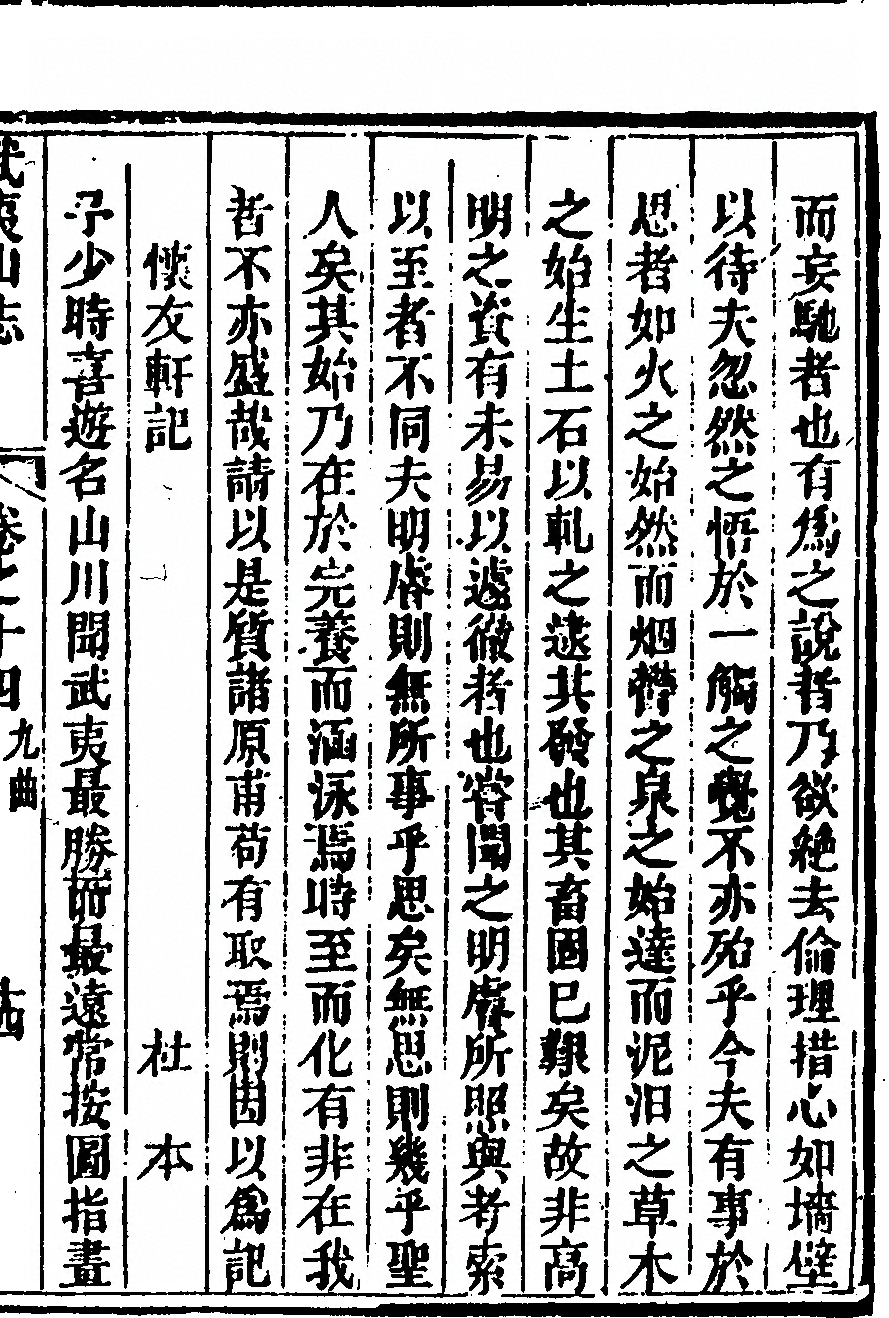 而妄馳者也有爲之說者乃欲絶去倫理措心如墻壁
以待夫忽然之悟於一觸之覺不亦殆乎今夫有事於
思者如火之始然而烟鬱之泉之始達而泥汨之草木
之始生土石以軋之逮其發也其畜固已艱矣故非高
明之資有未易以遽徹者也嘗聞之明睿所照與考索
以至者不同夫明睿則無所事乎思矣無思則幾乎聖
人矣其始乃在於完養而涵泳焉時至而化有非在我
者不亦盛哉請以是質諸原甫苟有取焉則因以爲記
懷友軒記 杜本
予少時喜遊名山川聞武夷最勝而最遠常按圖指畫
武夷山志 卷之十四 九曲 古